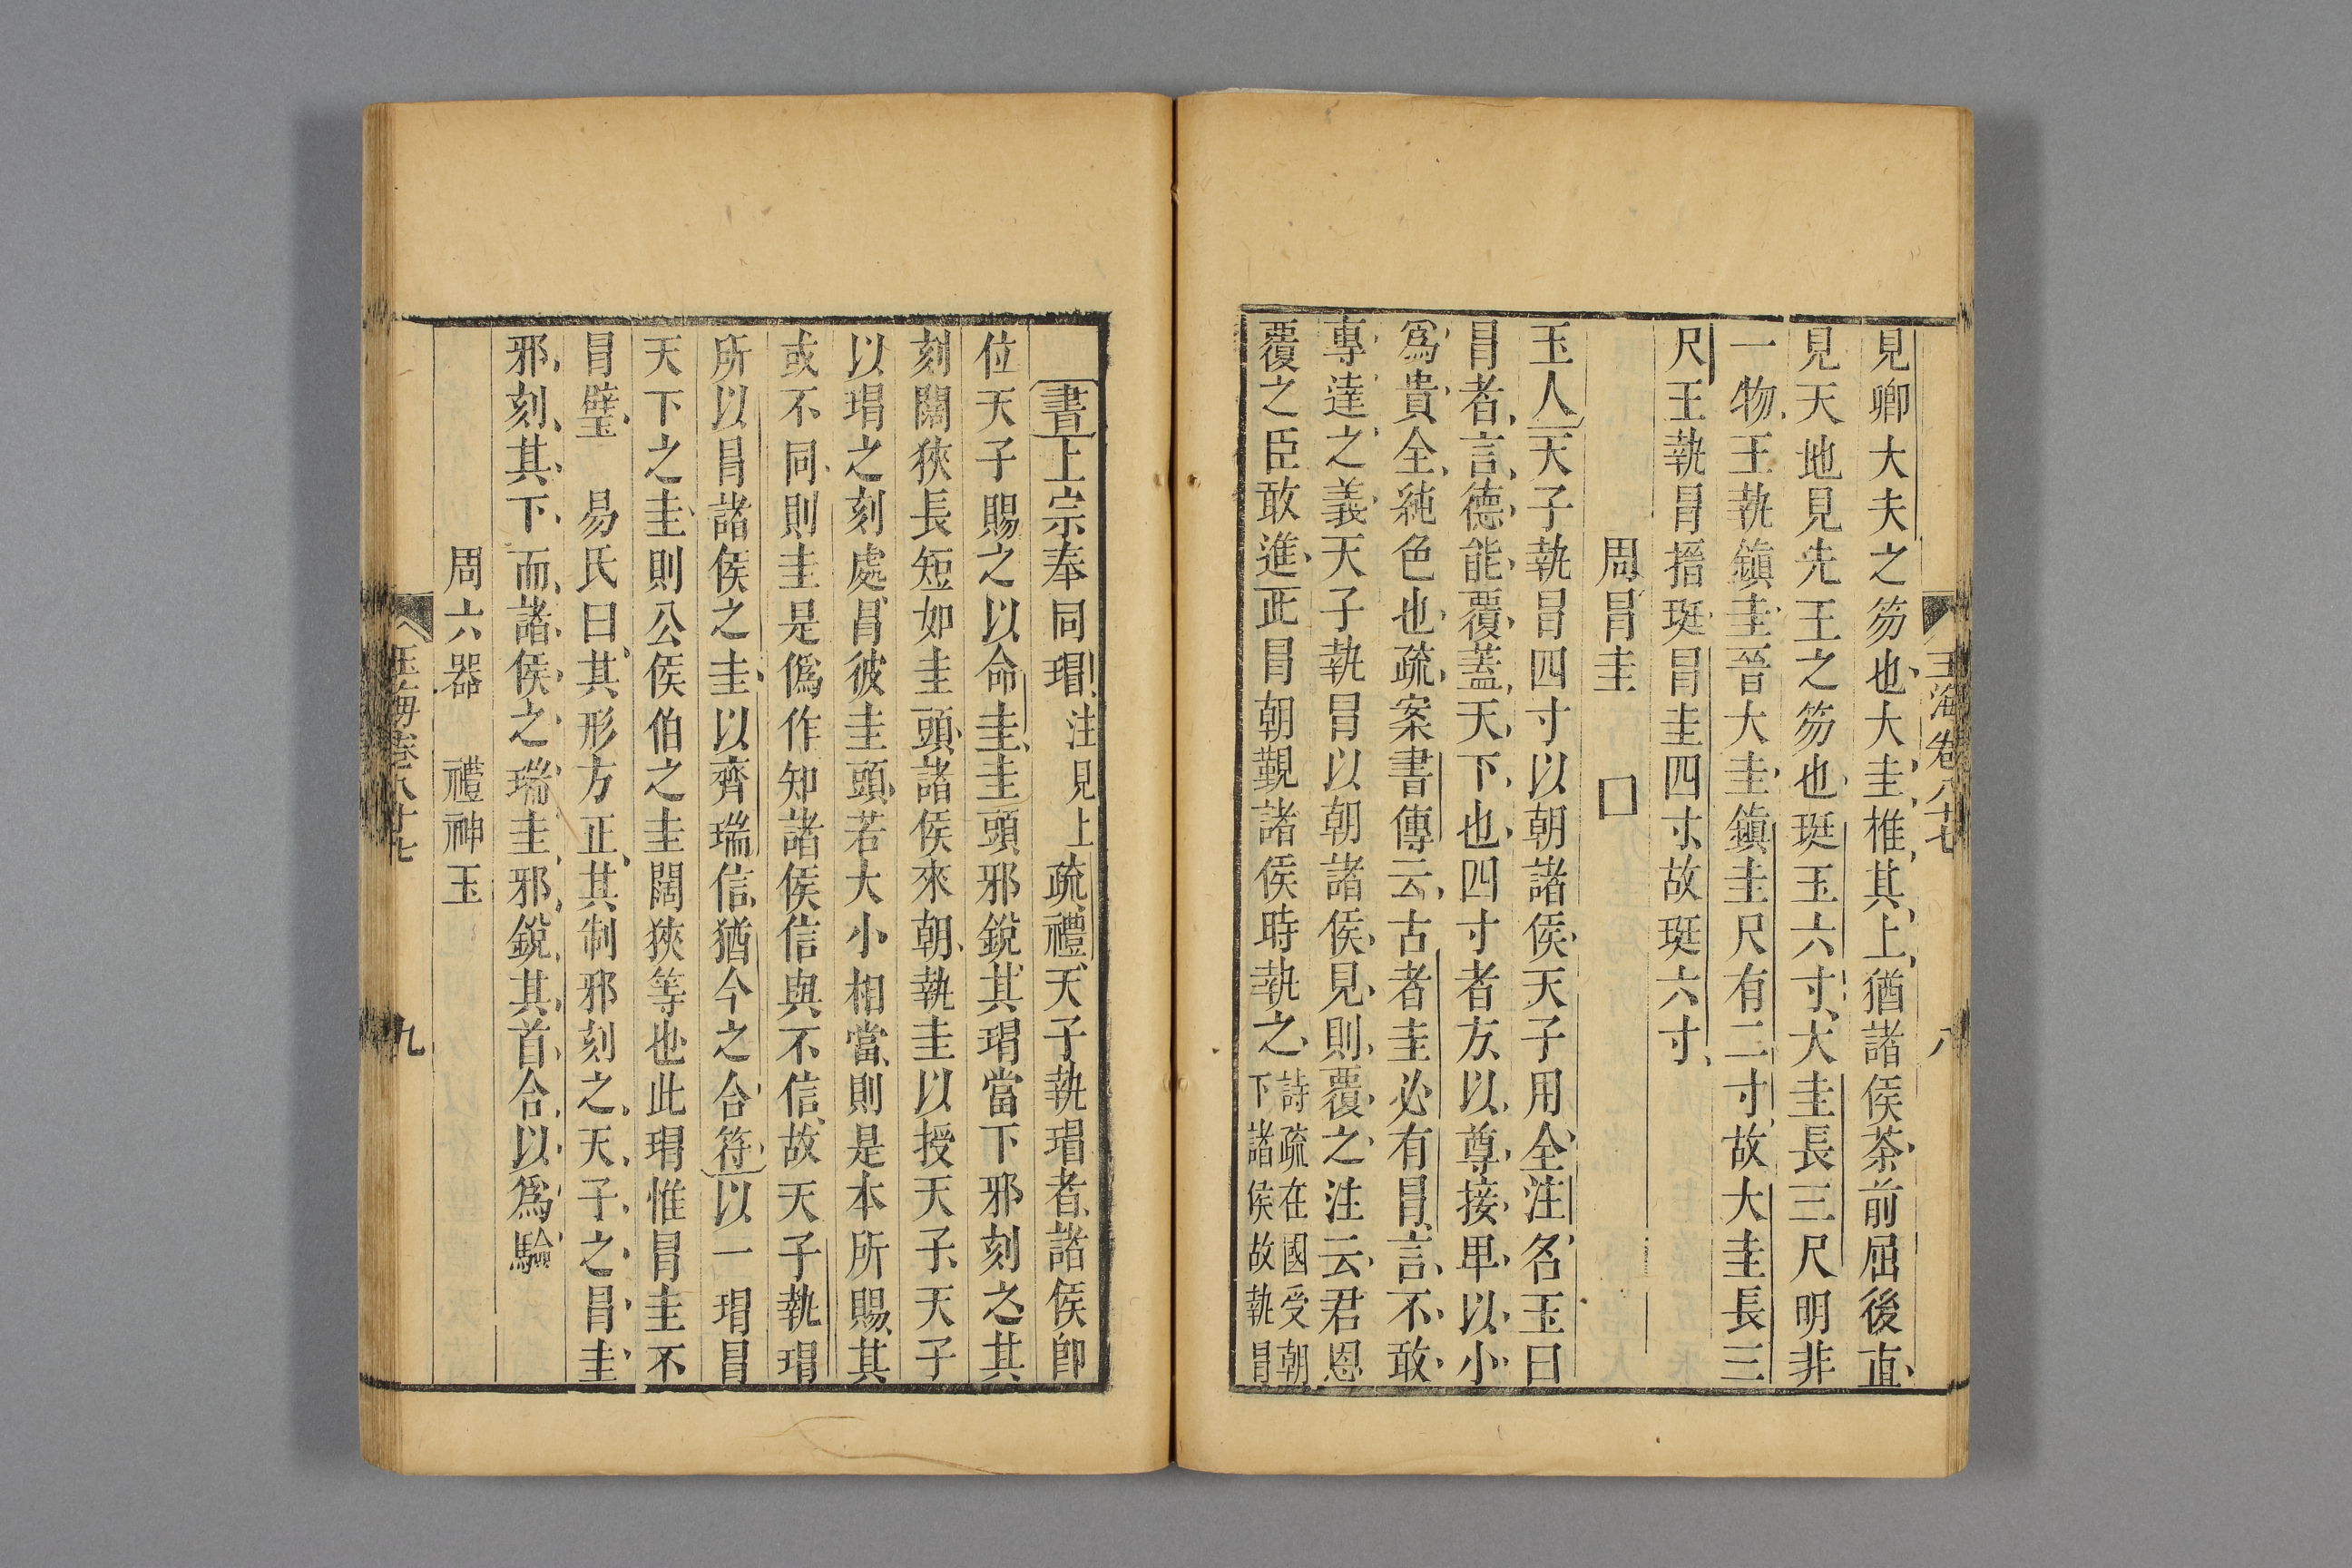 玉海卷八十七 八
見卿大夫之笏也大圭椎其上猶諸侯荼前屈後直
見天地見先王之笏也珽玉六寸大圭長三尺明非
一物王執鎮圭晉大圭鎮圭尺有二寸故大圭長三
尺王執冒搢珽冒圭四寸故珽六寸
周冒圭 囗
玉人天子執冒四寸以朝諸侯天子用全注名玉曰
冒者言德能覆蓋天下也四寸者方以尊接卑以小
爲貴全純色也疏案書傳云古者圭必有冒言不敢
專達之義天子執冒以朝諸侯見則覆之注云君恩
覆之臣敢進此冒朝覲諸侯時執之詩疏在國受朝
下諸侯故執冒
書上宗奉同瑁注見上疏禮天子執瑁者諸侯卽
位天子賜之以命圭圭頭邪銳其瑁當下邪刻之其
刻闊狹長短如圭頭諸侯來朝執圭以授天子天子
以瑁之刻處冒彼圭頭若大小相當則是本所賜其
或不同則圭是僞作知諸侯信與不信故天子執瑁
所以冒諸侯之圭以齊瑞信猶今之合符以一瑁冒
天下之圭則公侯伯之圭闊狹等也此瑁惟冒圭不
冒璧 易氏曰其形方正其制邪刻之天子之冒圭
邪刻其下而諸侯之瑞圭邪銳其首合以爲驗
周六器 禮神玉
玉海卷八十七 九